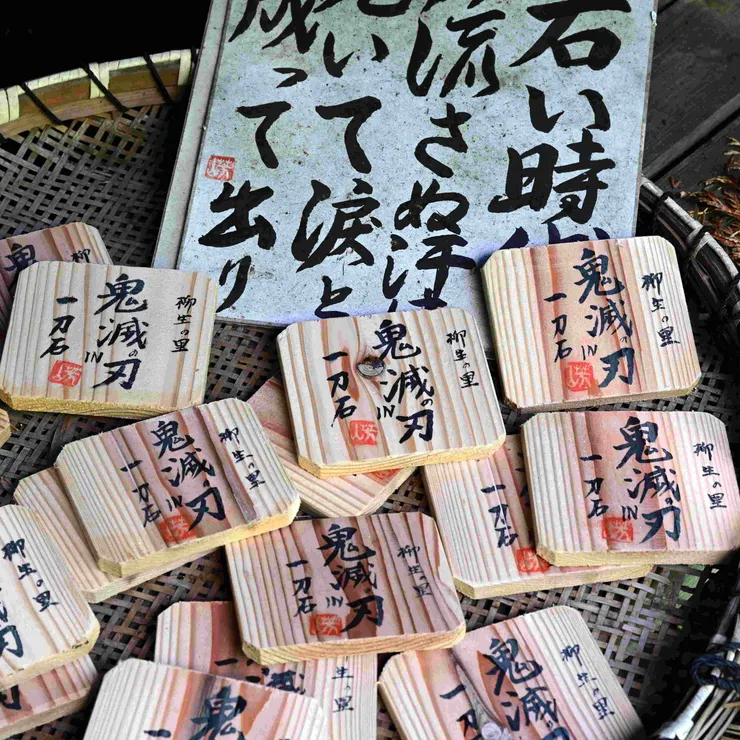 い時
流さぬ汗は
いて涙と
成って出り
鬼
柳
柳生の里
鬼滅の刃
IN
一刀石
柳生の里
鬼滅の刃
IN
一刀石
柳生の里
鬼滅の刃
IN
一刀石
柳生の里
鬼滅の刃
IN
一刀石
柳生の里
鬼滅の刃
IN
一刀石
一刀石
柳生の里
鬼滅の刃
IN
一刀石
柳生の里
刃
柳生の里
柳生の里
鬼滅
一刀
鬼